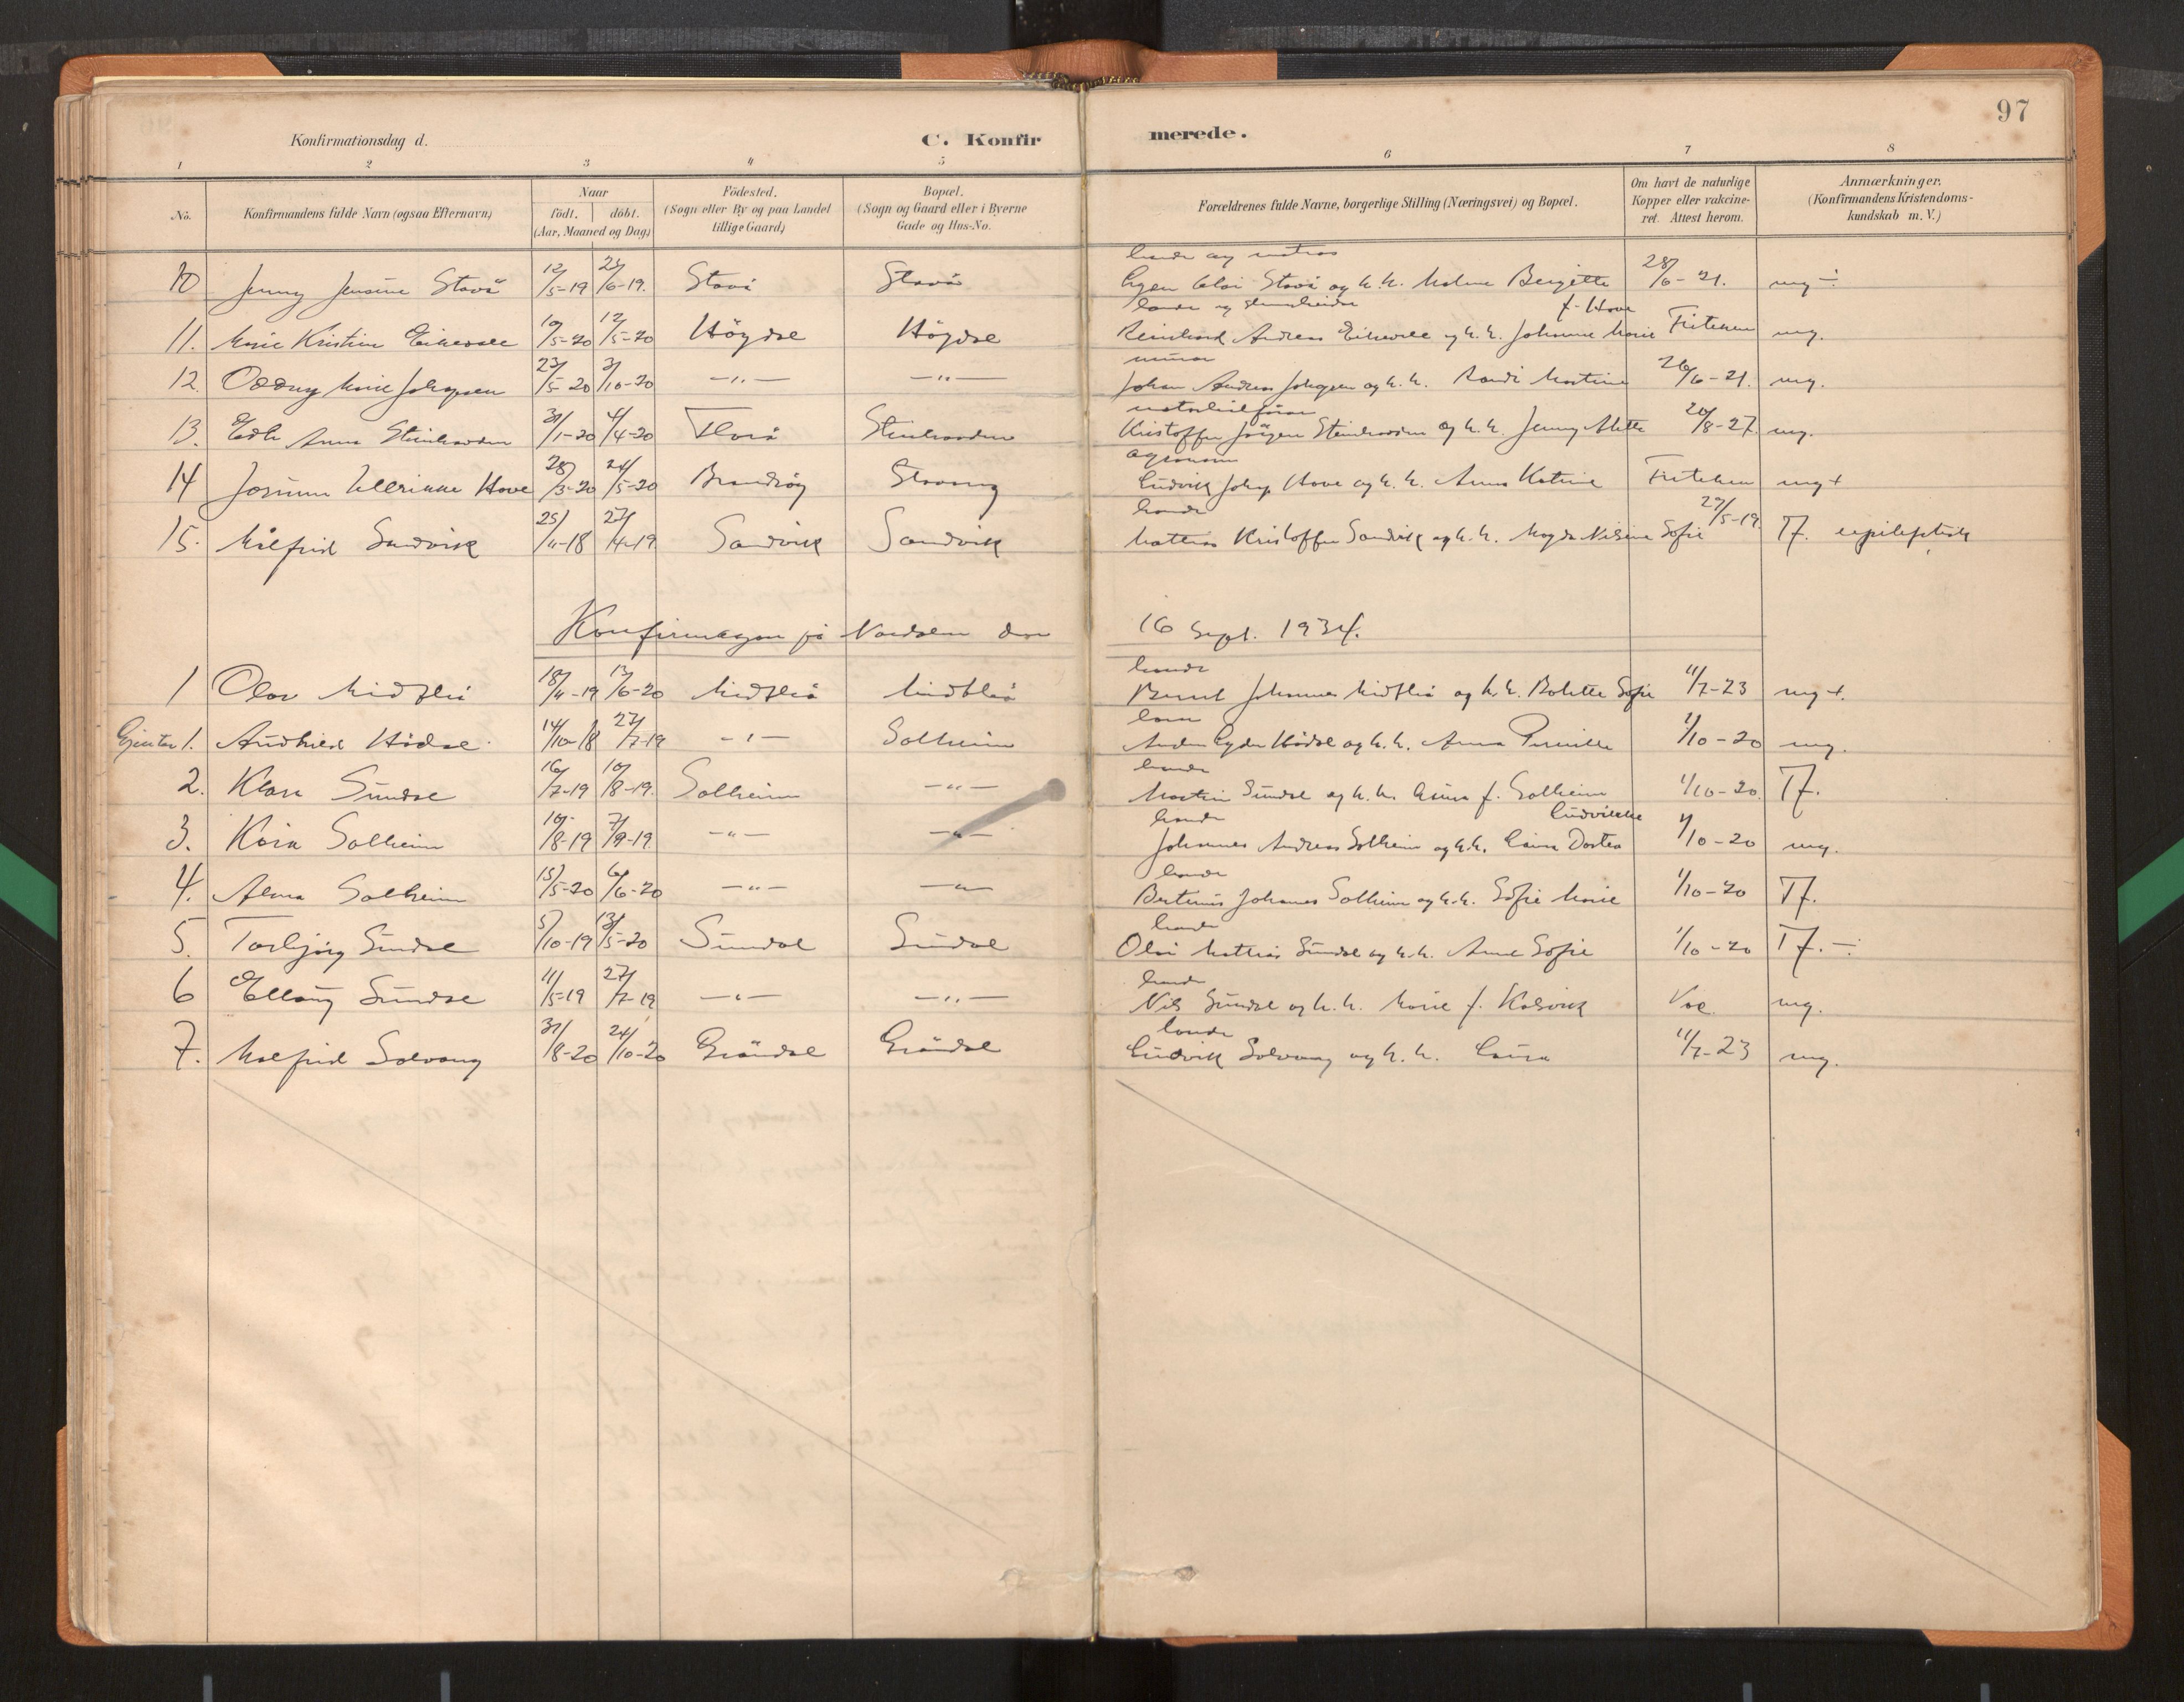 97
Konfirmationsdag d. C. Konfir merede.
1 2 3 4 5 6 7 8
No. Konfirmandens fulde Navn (ogsaa Efternavn) Naar födt. döbt. (Aar, Maaned og Dag) Födested. (Sogn eller By og paa Landet tillige Gaard) Bopæl. (Sogn og Gaard eller i Byerne Gade og Hus-No. Forældrenes fulde Navne, borgerlige Stilling (Næringsvei) og Bopæl. Om havt de naturlige Kopper eller vakcineret. Attest herom. Anmærkninger. (Konfirmandens Kristendomskundskab m. V.)
10 Jenny Jensine Stavö 12/5-19 /6-19. Stavö Stavö og h. k. Malene Bergitte 28/6-21. mg ÷
f. Hove
11. Marie Kristine Eikevoll 10/5-20 12/5-20 Högdal Högdal Reinhard Andreas Eikevoll og h. k. Johanne Marie mg.
12. Oddny Marie 23/5-20 3/10-20 —"— —"— Johan Andreas og h. k. Randi Martine 26/6-21. mg.
13. Anna Steinhovden 31/1-20 4/4-20 Florö Steinhovden Kristoffer Jörgen Steinhovden og h. k. Jenny 20/8-27. mg.
agronom
14 Ullrikke Hove 28/3-20 24/5-20 Brandsöy Stavang Ludvik Hove og h. k. Anna Katrine mg+
bonde
15. Målfrid Sandvik 25/11-18 27/4-19 Sandvik Sandvik Mattias Kristoffer Sandvik og h. k. Magda Nilsine Sofie 27/5-19. Tf. epileptisk
Konfirmasjon på Nordalen den 16 Sept. 1934.
bonde
1 Olav Midtliö 18/11-19 13/6-20 Midtliö Midtliö Bernt Johannes Midtliö og h. k. Bolette Sofie 11/7-23 mg+.
Gjentor 1. Audhild Hödal 14/10-18 27/7-19 —"— Solheim Hödal og h. k. Anna Pernille 1/10-20 mg.
bonde
2. Klara Sundal 16/7-19 10/8-19. Solheim —"— Martin Sundal og h. k. f. Solheim 1/10-20. Tf.
bonde Ludvikke
3. Kåra Solheim 10/8-19 7/9-19. —"— —"— Johannes Andreas Solheim og h. k. Laura Dortea 1/10-20 mg.
bonde
4. Alma Solheim 15/5-20 6/6-20 —"— —"— Bertinus Johannes Solheim og h. k. Sofie Marie 1/10-20 Tf.
bonde
5. Torbjörg Sundal 5/10-19 13/5-20 Sundal Sundal Olai Mattias Sundal og h. k. Anne Sofie 1/10-20 Tf. ÷
bonde
6 Ellaug Sundal 11/5-19 27/7-19 —"— —"— Nils Sundal og h. k. Marie f. Kalsvik Vac. mg.
bonde
7. Målfrid Solvang 31/8-20 24/10-20 Gröndal Gröndal Ludvik Solvang og h. k. Laura 11/7-23 mg.